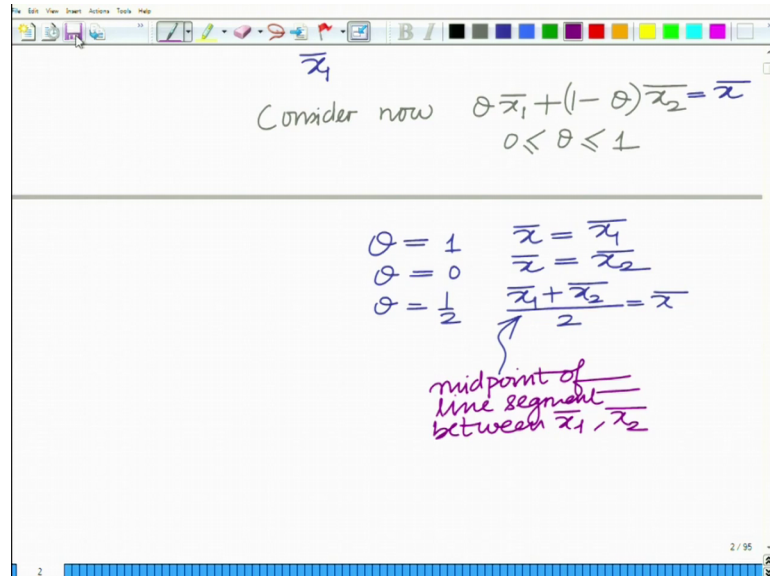 File Edit View Insert Actions Tools Help
B I
x̄₁
Consider now θ x̄₁ + (1 - θ) x̄₂ = x̄
0 ≤ θ ≤ 1
θ = 1 x̄ = x̄₁
θ = 0 x̄ = x̄₂
θ = 1/2 (x̄₁ + x̄₂)/2 = x̄
midpoint of
line segment
between x̄₁, x̄₂
2 / 95
2